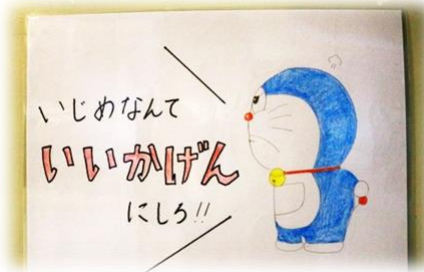 いじめなんて
いいかげん
にしろ!!